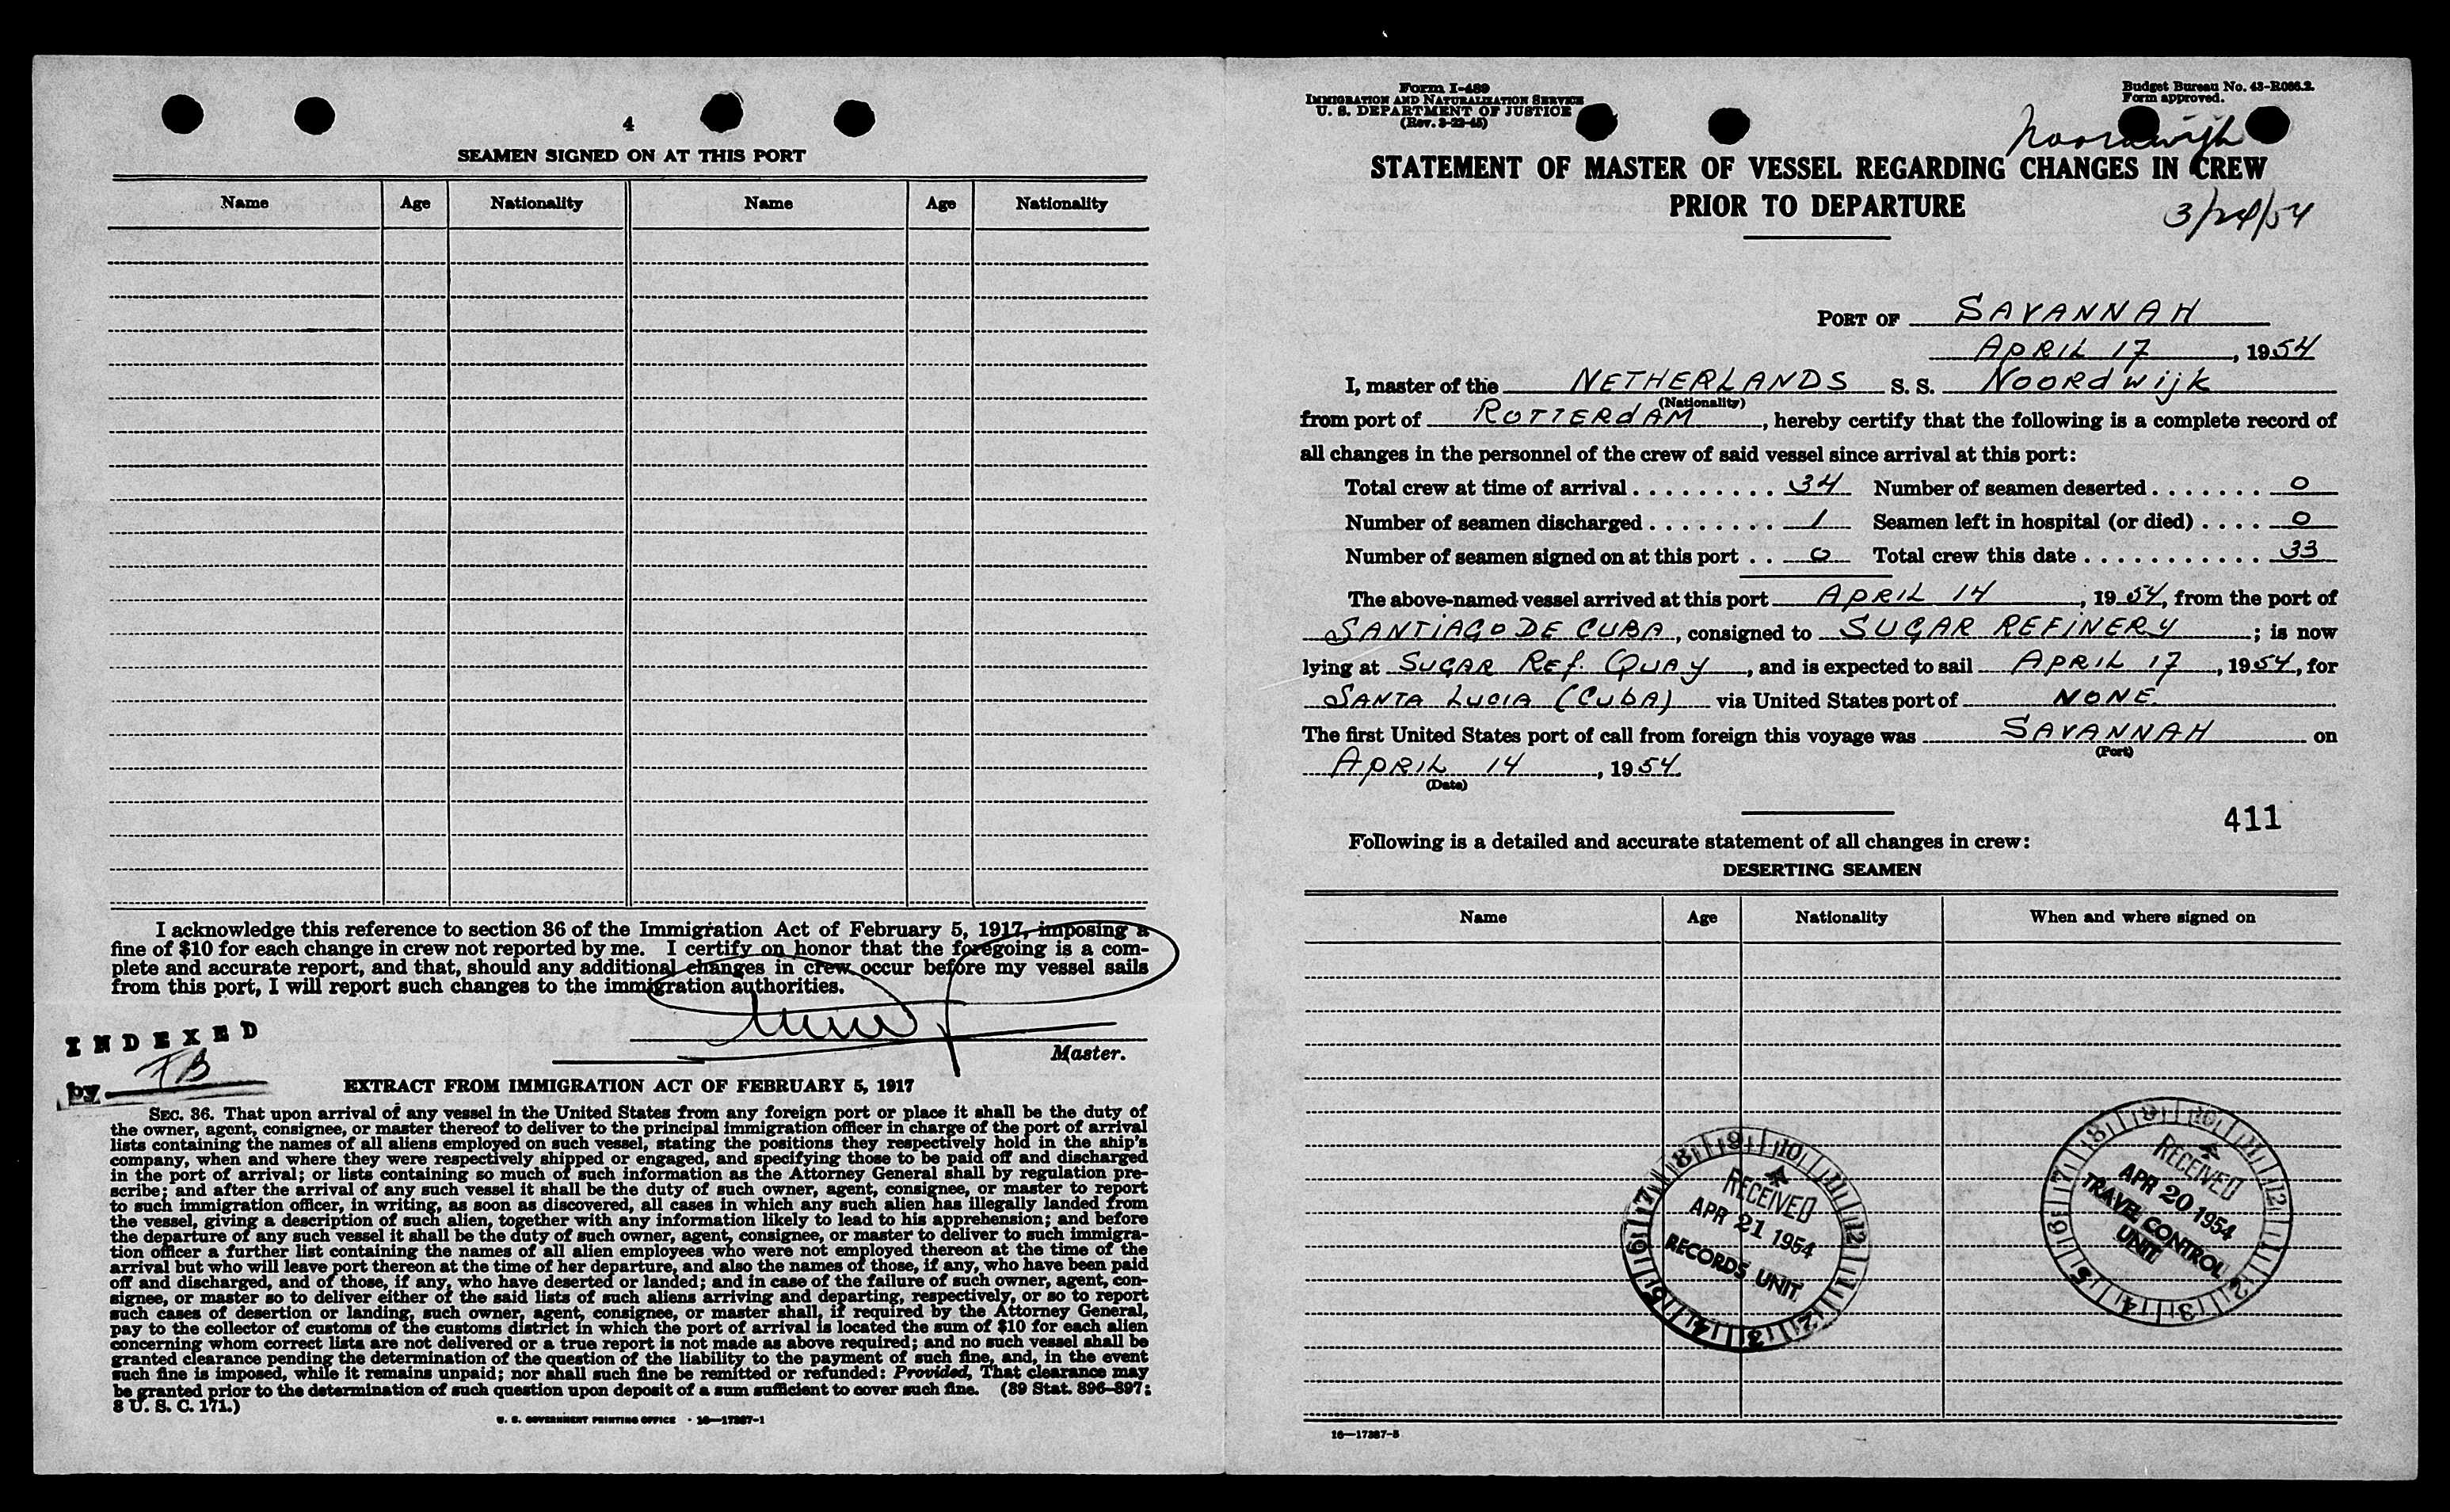 4
SEAMEN SIGNED ON AT THIS PORT
Name Age Nationality Name Age Nationality
I acknowledge this reference to section 36 of the Immigration Act of February 5, 1917, imposing a
fine of $10 for each change in crew not reported by me. I certify on honor that the foregoing is a com-
plete and accurate report, and that, should any additional changes in crew occur before my vessel sails
from this port, I will report such changes to the immigration authorities.
Master.
INDEXED
by
EXTRACT FROM IMMIGRATION ACT OF FEBRUARY 5, 1917
SEC. 36. That upon arrival of any vessel in the United States from any foreign port or place it shall be the duty of
the owner, agent, consignee, or master thereof to deliver to the principal immigration officer in charge of the port of arrival
lists containing the names of all aliens employed on such vessel, stating the positions they respectively hold in the ship's
company, when and where they were respectively shipped or engaged, and specifying those to be paid off and discharged
in the port of arrival; or lists containing so much of such information as the Attorney General shall by regulation pre-
scribe; and after the arrival of any such vessel it shall be the duty of such owner, agent, consignee, or master to report
to such immigration officer, in writing, as soon as discovered, all cases in which any such alien has illegally landed from
the vessel, giving a description of such alien, together with any information likely to lead to his apprehension; and before
the departure of any such vessel it shall be the duty of such owner, agent, consignee, or master to deliver to such immigra-
tion officer a further list containing the names of all alien employees who were not employed thereon at the time of the
arrival but who will leave port thereon at the time of her departure, and also the names of those, if any, who have been paid
off and discharged, and of those, if any, who have deserted or landed; and in case of the failure of such owner, agent, con-
signee, or master so to deliver either of the said lists of such aliens arriving and departing, respectively, or so to report
such cases of desertion or landing, such owner, agent, consignee, or master shall, if required by the Attorney General,
pay to the collector of customs of the customs district in which the port of arrival is located the sum of $10 for each alien
concerning whom correct lists are not delivered or a true report is not made as above required; and no such vessel shall be
granted clearance pending the determination of the question of the liability to the payment of such fine, and, in the event
such fine is imposed, while it remains unpaid; nor shall such fine be remitted or refunded: Provided, That clearance may
be granted prior to the determination of such question upon deposit of a sum sufficient to cover such fine. (39 Stat. 896-897;
8 U. S. C. 171.)
U. S. GOVERNMENT PRINTING OFFICE 16—17387-1
Form I-489
IMMIGRATION AND NATURALIZATION SERVICE
U. S. DEPARTMENT OF JUSTICE
(Rev. 3-22-45)
Budget Bureau No. 43-R066.2.
Form approved.
Noordwijk
STATEMENT OF MASTER OF VESSEL REGARDING CHANGES IN CREW
PRIOR TO DEPARTURE
3/24/54
PORT OF SAVANNAH
APRIL 17, 1954
I, master of the NETHERLANDS S. S. NOORdwijk
(Nationality)
from port of ROTTERdAM, hereby certify that the following is a complete record of
all changes in the personnel of the crew of said vessel since arrival at this port:
Total crew at time of arrival . . . . . . . . . 34 Number of seamen deserted . . . . . . . 0
Number of seamen discharged . . . . . . . . 1 Seamen left in hospital (or died) . . . . 0
Number of seamen signed on at this port . . 0 Total crew this date . . . . . . . . . . . 33
The above-named vessel arrived at this port APRIL 14, 1954, from the port of
SANTiAGO DE CUBA, consigned to SUGAR REFINERY; is now
lying at SUGAR REf. QUAY, and is expected to sail APRIL 17, 1954, for
SANTA LUCIA (CUbA) via United States port of NONE.
The first United States port of call from foreign this voyage was SAVANNAH on
(Port)
APRIL 14, 1954.
(Date)
411
Following is a detailed and accurate statement of all changes in crew:
DESERTING SEAMEN
Name Age Nationality When and where signed on
RECEIVED
APR 21 1954
RECORDS UNIT
RECEIVED
APR 20 1954
TRAVEL CONTROL
UNIT
16—17387-5